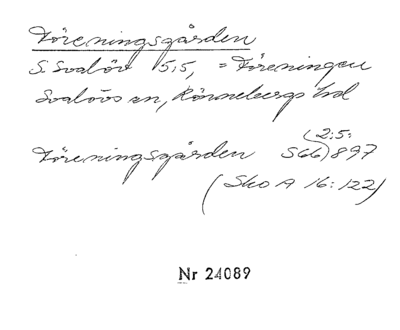 Föreningsgården
S. Svalöv 15:15, = Föreningen
Svalövs sn, Rönnebergs hd
(2:5:
Föreningsgården S66) 897
(Sko A 16:122)
Nr 24089